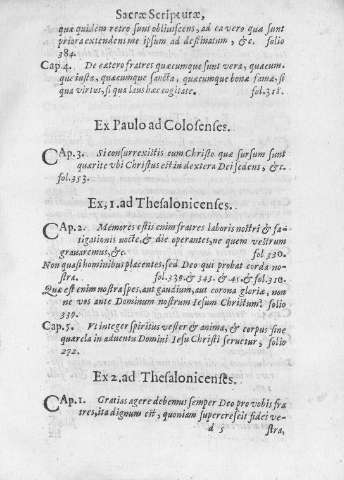 Sacræ Scripturæ,
quæ quidem retro sunt obliuiscens, ad ea vero quæ sunt
priora extendens me ipsum ad destinatum, &c. folio
384.
Cap.4. De cætero fratres quæcumque sunt vera, quæcum-
que iusta, quæcumque sancta, quæcumque bonæ famæ, si
qua virtus, si qua laus hæc cogitate. fol.318.
Ex Paulo ad Colosenses.
CAp.3. Si consurrexistis cum Christo quæ sursum sunt
quærite vbi Christus est in dextera Dei sedens, &c.
fol.353.
Ex, 1. ad Thesalonicenses.
CAp.2. Memores estis enim fratres laboris nostri & fa-
tigationis nocte, & die operantes, ne quem vestrum
grauaremus, &c. fol 330.
Non quasi hominibus placentes, sed Deo qui probat corda no-
stra. fol.339.& 343. & 45. & fol.310.
Quæ est enim nostra spes, aut gaudium, aut corona gloriæ, non
ne vos ante Dominum nostrum Iesum Christum? folio
339.
Cap.5. Vt integer spiritus vester & anima, & corpus sine
quærela in aduentu Domini Iesu Christi seruetur, folio
272.
Ex 2. ad Thesalonicenses.
CAp.1. Gratias agere debemus semper Deo pro vobis fra
tres, ita dignum est, quoniam supercrescit fidei ve-
d 5 stra,